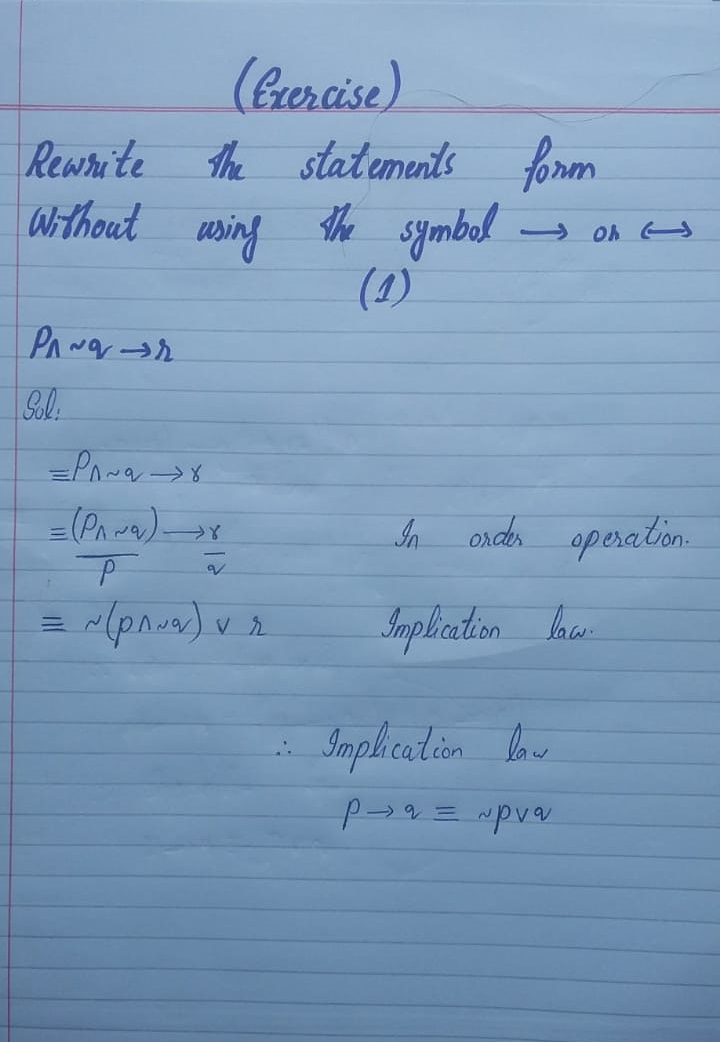 (Exercise)
Rewrite the statements form
Without using the symbol → or ↔
(1)
P∧~q→r
Sol:
≡P∧~q→r
≡(P∧~q)→r In order operation.
P q
≡ ~(p∧~q) ∨ r Implication law.
∴ Implication law
p→q ≡ ~p∨q